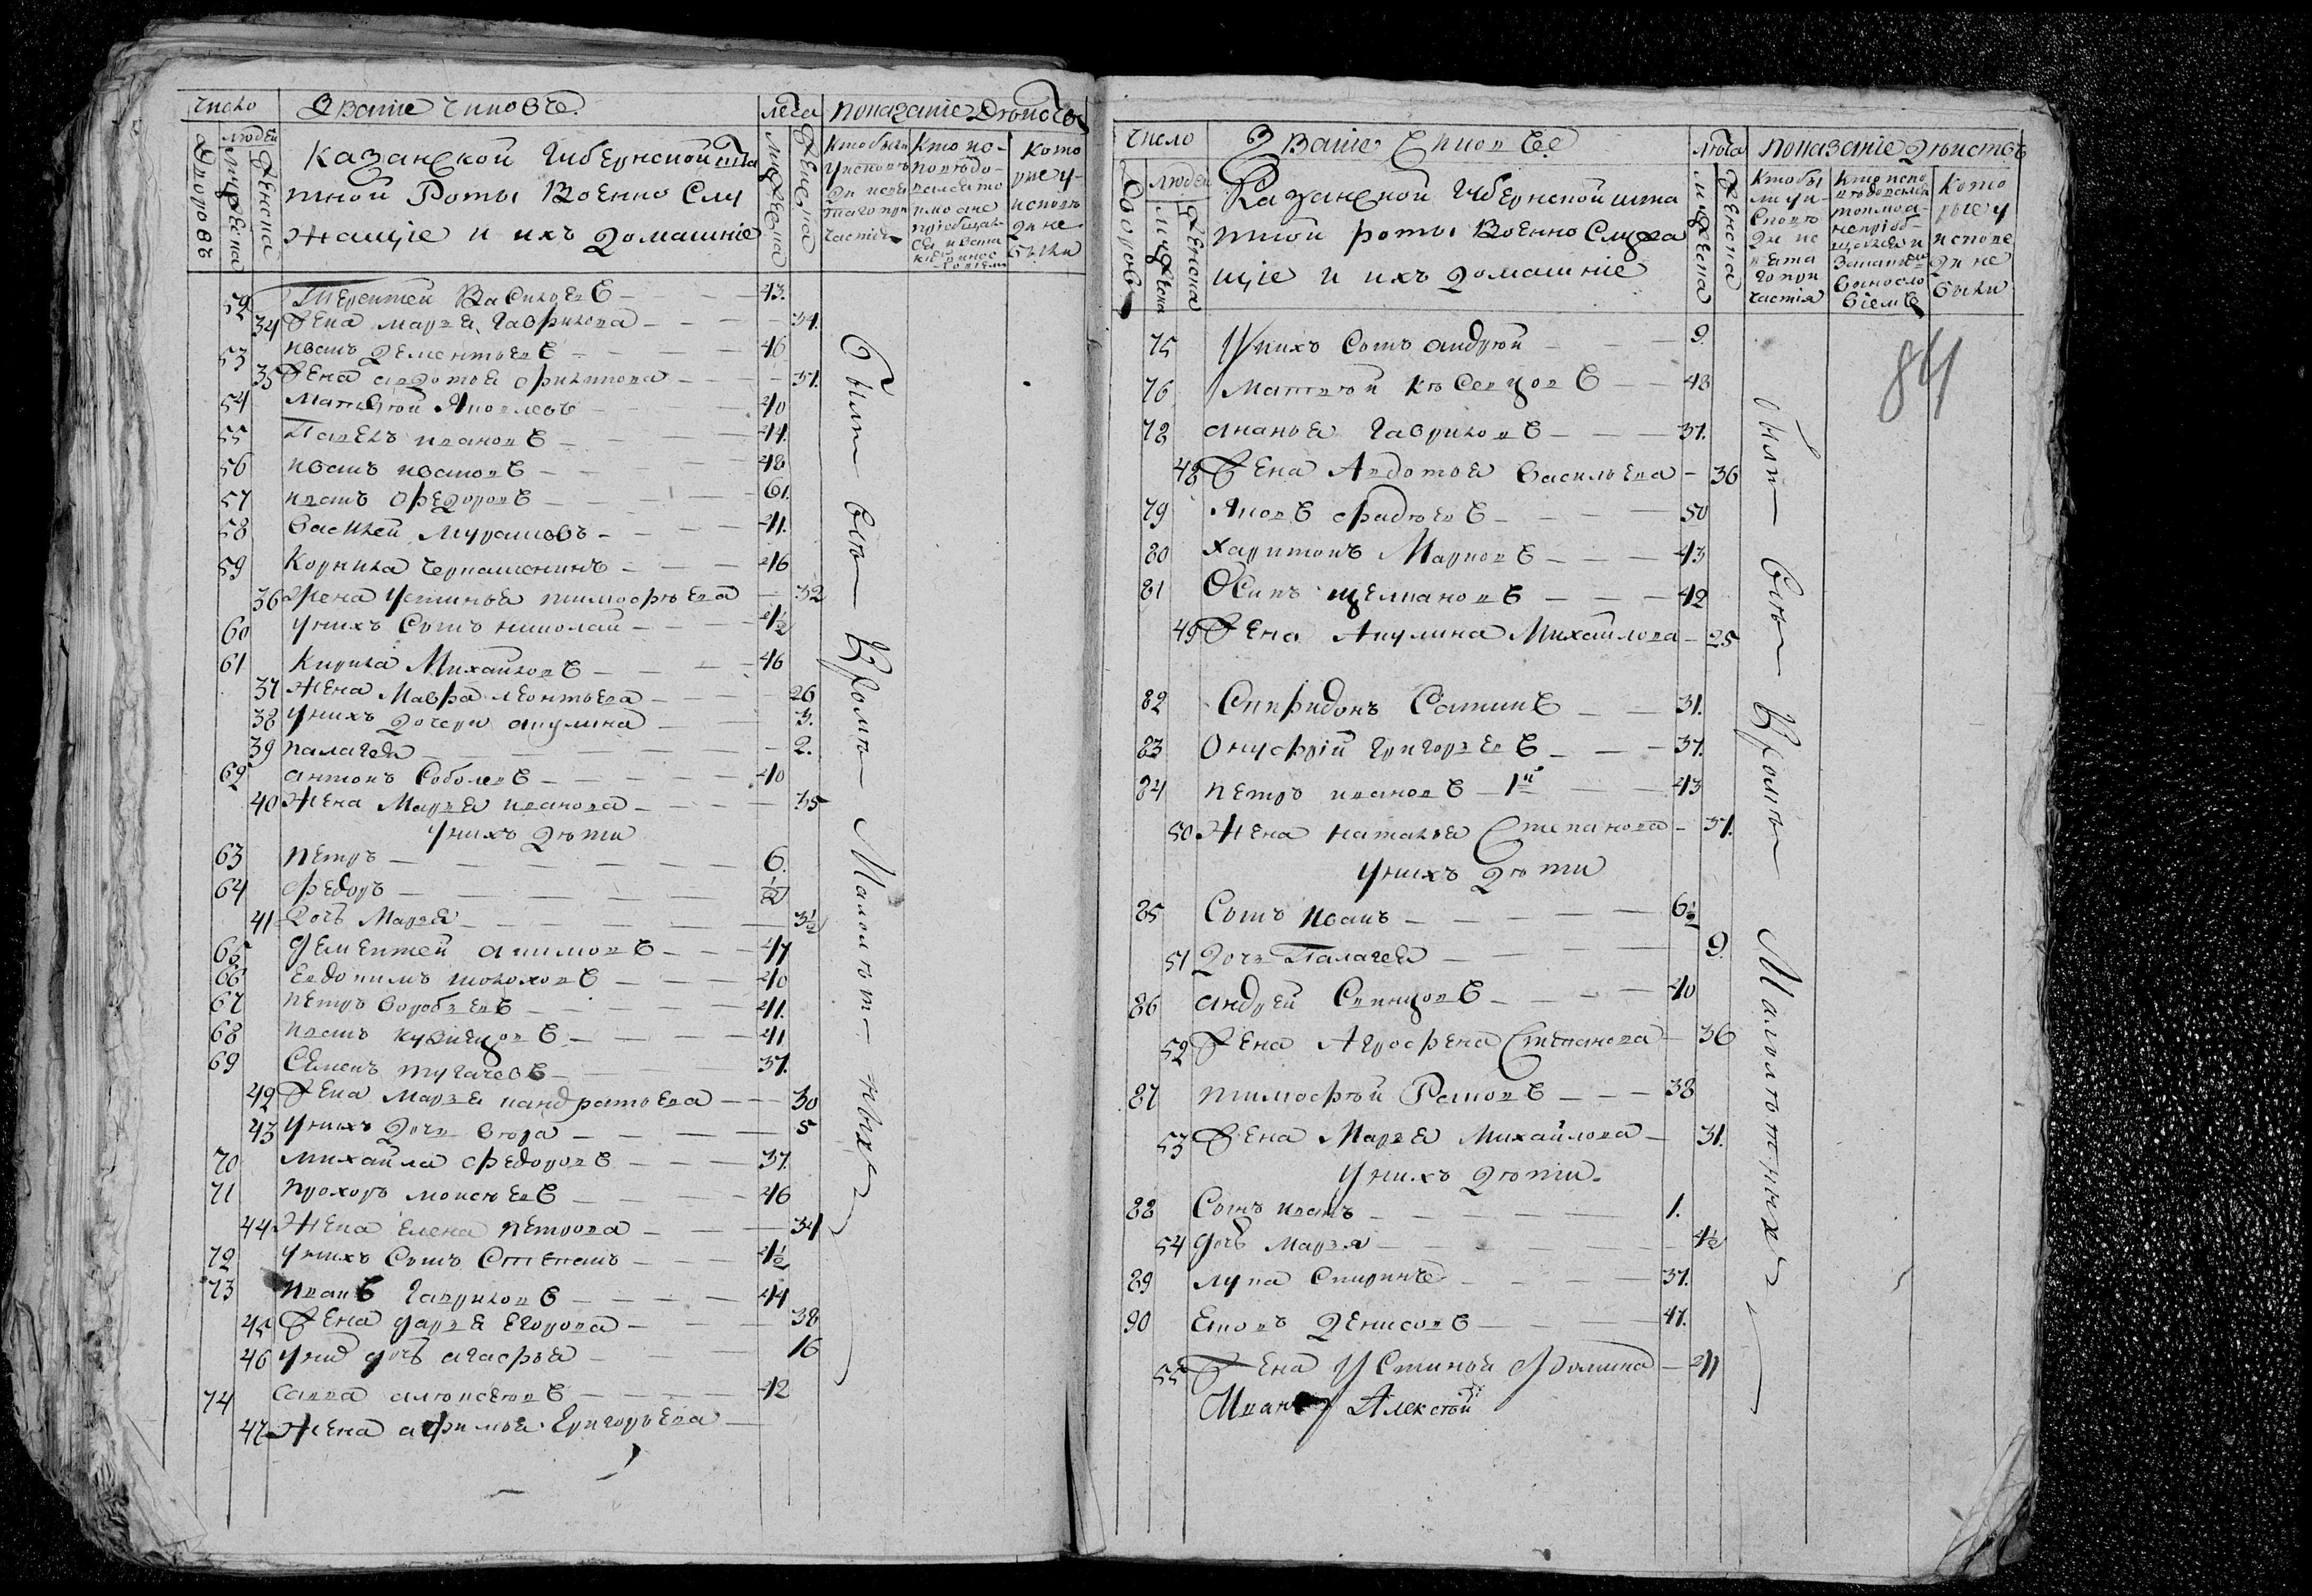 число Званіе чиновъ лета показаніе действъ
Дворовъ людей мужеска женска мужеска женска
Казанской Губернской шта
тной Роты Военно Слу
жащіе и ихъ домашніе
Кто были у исповеди и святаго причастія
которые у исповеди не были
52 Терентей Васильевъ 43.
34 Жена Марья Гаврилова 34.
53 иванъ Дементьевъ 46
35 Жена авдотья филипова 37.
54 Матвеой Яковлевъ 40
55 Павелъ ивановъ 44.
56 иванъ ивановъ 48
57 иванъ Федоровъ 61.
58 василей Мурашовъ 41.
59 Корнила Чернашенинъ 46
36 Жена Устинья тимофеева 32
60 у нихъ Сынъ николай 1/2
61 Кирила Михайловъ 46
37 Жена Мавра леонтьева 26
38 у нихъ дочери акулина 3.
39 палагея 2.
62 антонъ Соболевъ 40
40 Жена Марья иванова 35
у нихъ дети
63 петръ 6.
64 федоръ 1/2
41 Дочь Марья 3 1/2
65 Дементей акимовъ 47
66 евдокимъ шолоховъ 40
67 петръ воробьевъ 41.
68 иванъ кузнецовъ 41
69 Семенъ тугачевъ 37.
42 Жена Марья кандратьева 30
43 у нихъ дочь вера 5
70 михайла федоровъ 37.
71 прохоръ моисеевъ 46
44 Жена елена петрова 34
72 у нихъ Сынъ Степанъ 4 1/2
73 иванъ гавриловъ 44
45 Жена дарья егорова 38
46 у нихъ дочь агафья 16
74 савва алексеевъ 42
47 Жена афимья Григорьева
Были все Кроме Малолетныхъ
число Званіе чиновъ лета показаніе действъ
Дворовъ людей мужеска женска мужеска женска
Казанской Губернской шта
тной роты Военно Служа
щіе и ихъ домашніе
которые у исповеди не были
84
75 У нихъ Сынъ андрей 9.
76 Матвей 48
78 ананья гавриловъ 37.
48 Жена Авдотья васильева 36
79 Яковъ фадеевъ 50
80 харитонъ Марковъ 43
81 Осипъ щелкановъ 42
49 Жена Акулина Михайлова 25
82 Спиридонъ 31.
83 Онуфрій григорьевъ 37.
84 петръ ивановъ 1й 43
50 Жена наталья Степанова 37.
у нихъ дети
85 Сынъ иванъ 6 1/2
51 Дочь Палагея 9.
86 андрей Скворцовъ 40
52 Жена Аграфена Степанова 36
87 тимофей 38
53 Жена Марья Михайлова 31.
у нихъ дети.
88 Сынъ иванъ 1.
54 дочь Марья 4 1/2
89 лука Спиринъ 37.
90 Денисовъ 47.
55 Жена Устинья Фомина
Иван Алексей
были все Кроме Малолетныхъ